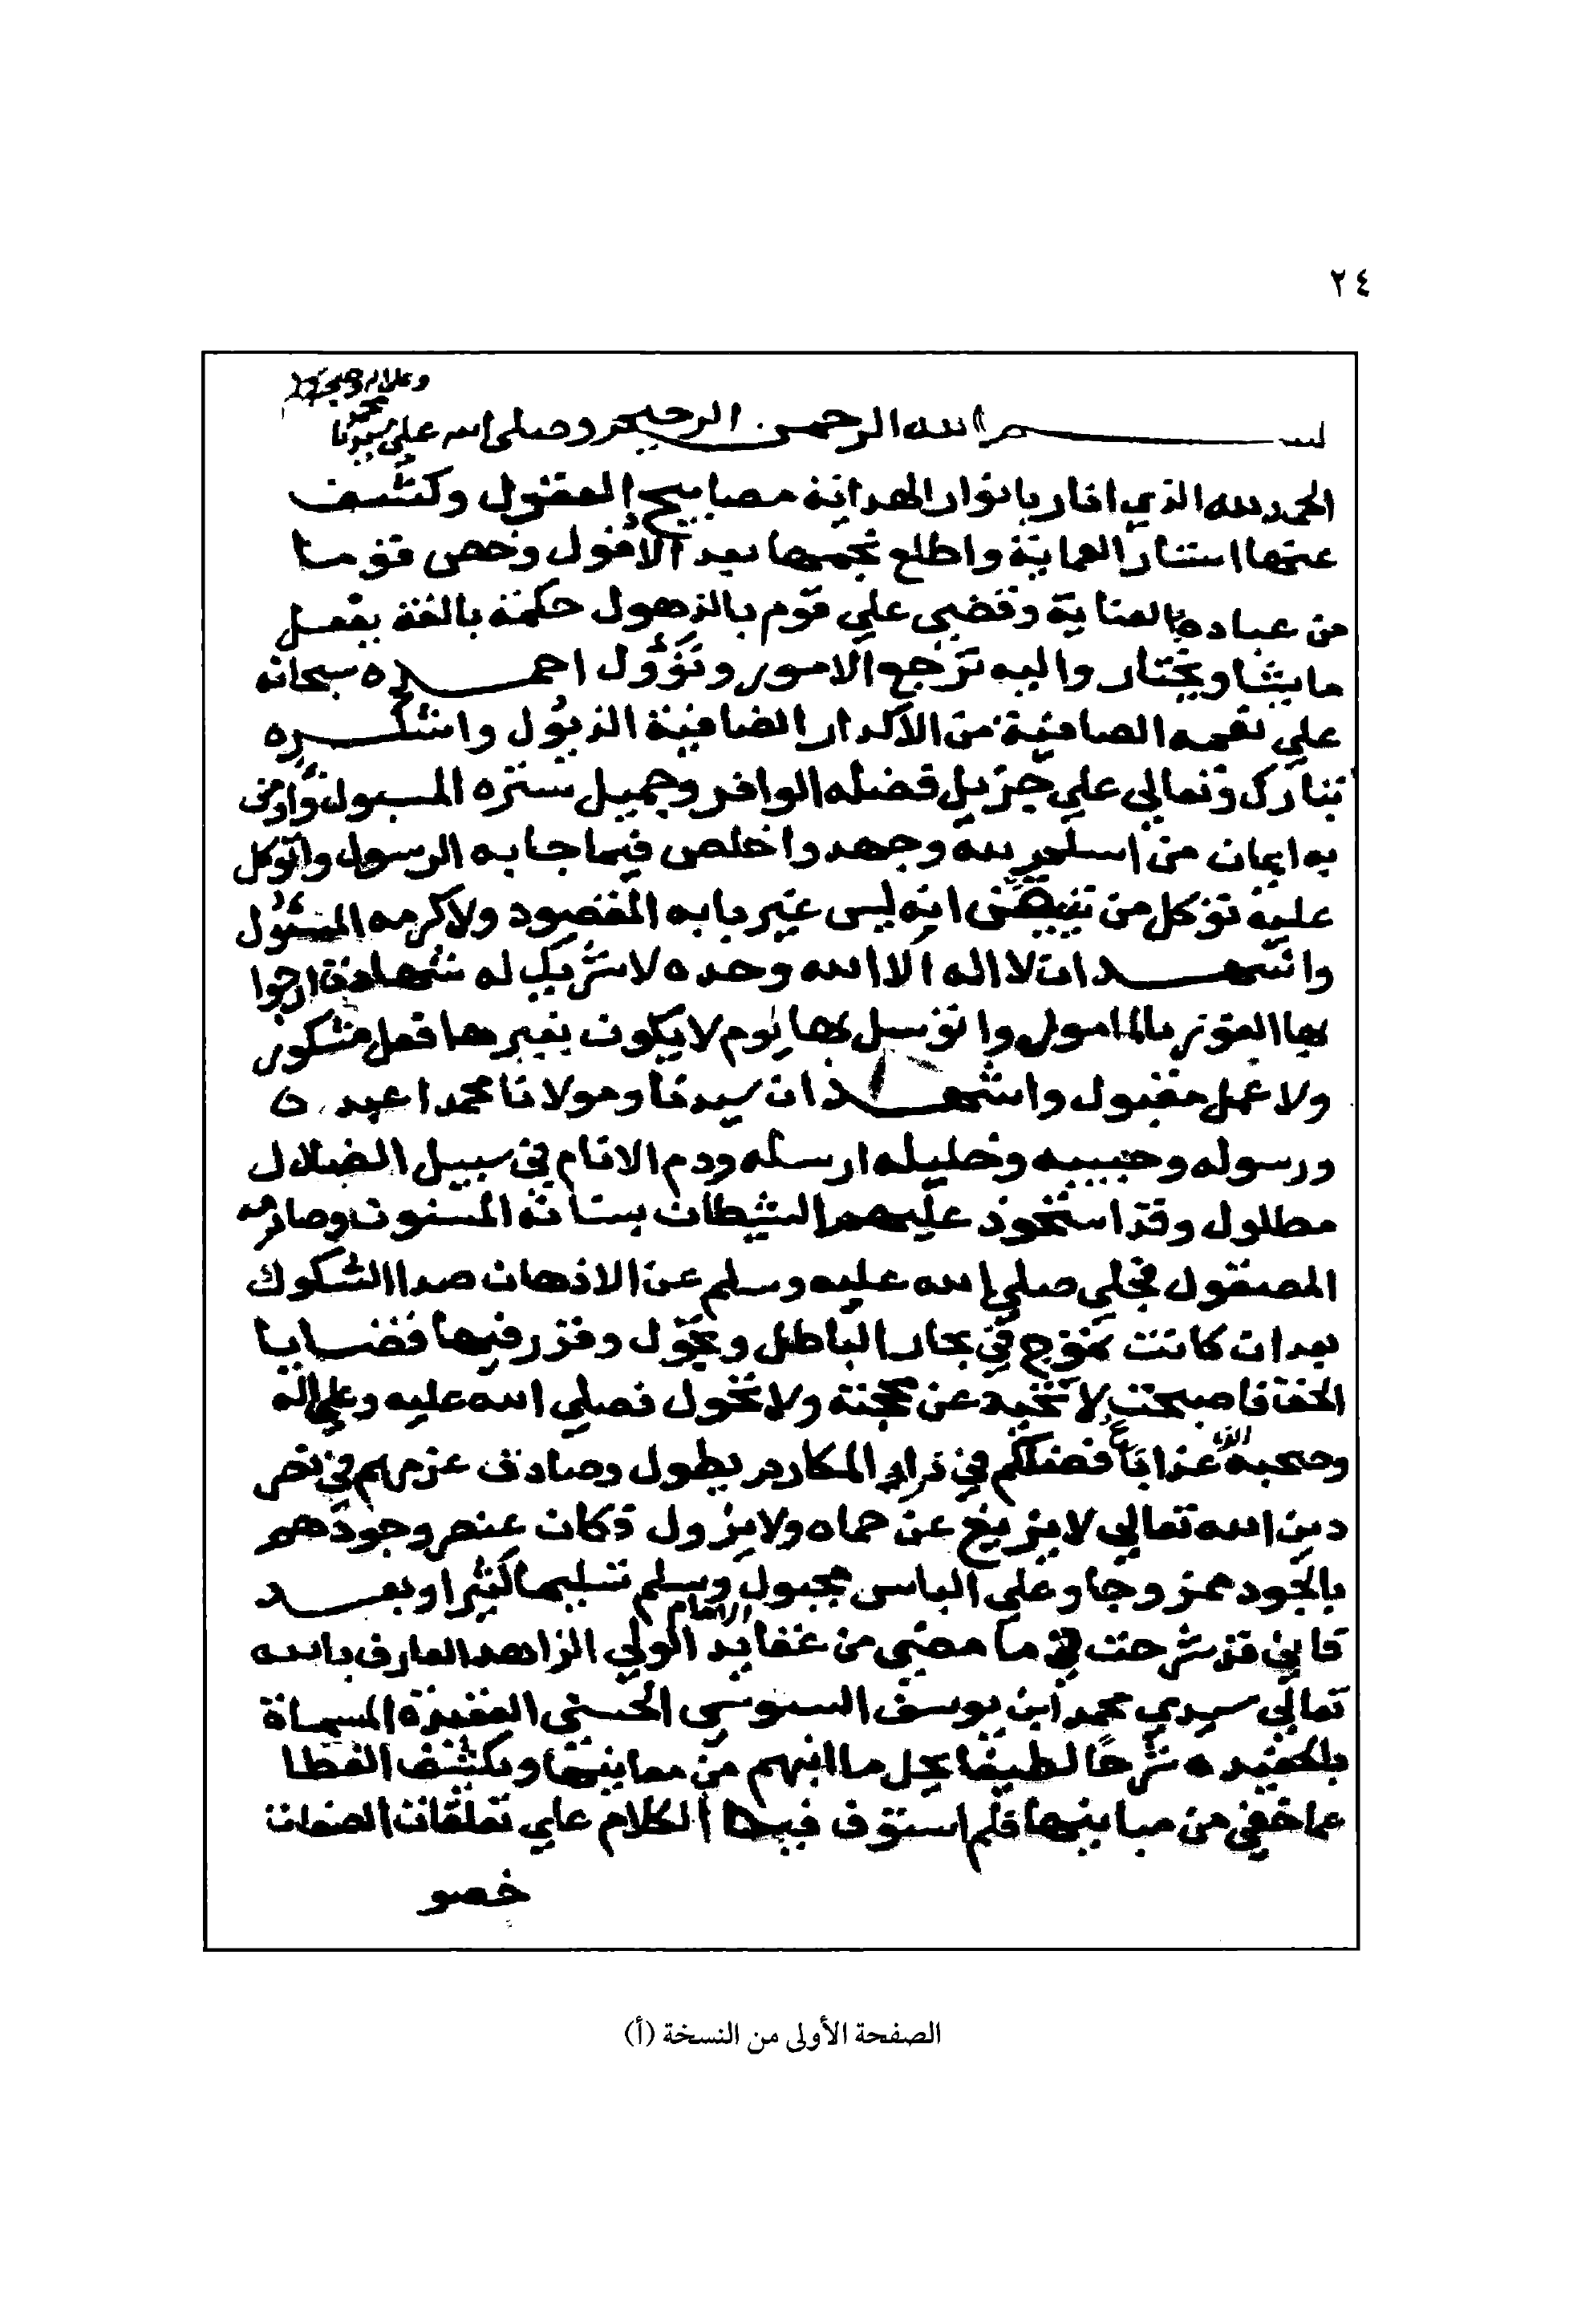 ٢٤
وعلى اله وصحبه
بسم الله الرحمن الرحيم وصلى الله علي سيدنا محمد
الحمد لله الذي انار بانوار الهداية مصابيح العقول وكشف
عنها استار العماية واطلع نجمها بعد الافول وخص قوما
من عباده بالعناية وقضى علي قوم بالذهول حكمة بالغة يفعل
ما يشا ويختار واليه ترجع الامور وتؤول احمده سبحانه
علي نعمه الصافية من الاكدار الضافية الذيول واشكره
تبارك وتعالي علي جزيل فضله الوافر وجميل ستره المسبول واومن
به ايمان من اسلم لله وجهه واخلص فيما جا به الرسول واتوكل
عليه توكل من تيقن انه ليس غير بابه المقصود ولا كرمه المسئول
واشهد ان لا اله الا الله وحده لا شريك له شهادة ارجوا
بها الفوز بالمامول واتوسل بها يوم لا يكون بغيرها فعل مشكور
ولا عمل مقبول واشهد ان سيدنا ومولانا محمدا عبده
ورسوله وحبيبه وخليله ارسله ودم الانام في سبيل الضلال
مطلول وقد استحوذ عليهم الشيطان بسنانه المسنون وصارمه
المصقول فجلي صلي الله عليه وسلم عن الاذهان صدا الشكوك
بعد ان كانت تموج في بحار الباطل وتجول وقرر فيها قضايا
الحق فاصبحت لا تحيد عن محجته ولا تحول فصلي الله عليه وعلي اله
وصحبه فضلكم في المكارم يطول وصادق عزمهم في نصر
دين الله تعالي لا يزيغ عن حماه ولا يزول فكان عنصر وجودهم
بالجود ممزوجا وعلي الباس مجبول وسلم تسليما كثيرا وبعد
فاني قد شرحت في ما مضي من عقايد الامام الولي الزاهد العارف بالله
تعالي سيدي محمد ابن يوسف السنوسي الحسني العقيدة المسماة
بالحفيده شرحا لطيفا يحل ما انبهم من معانيها ويكشف الغطا
عما خفي من مبانيها فلم استوف فيها الكلام علي تعلقات الصفات
خصو
الصفحة الأولى من النسخة (أ)